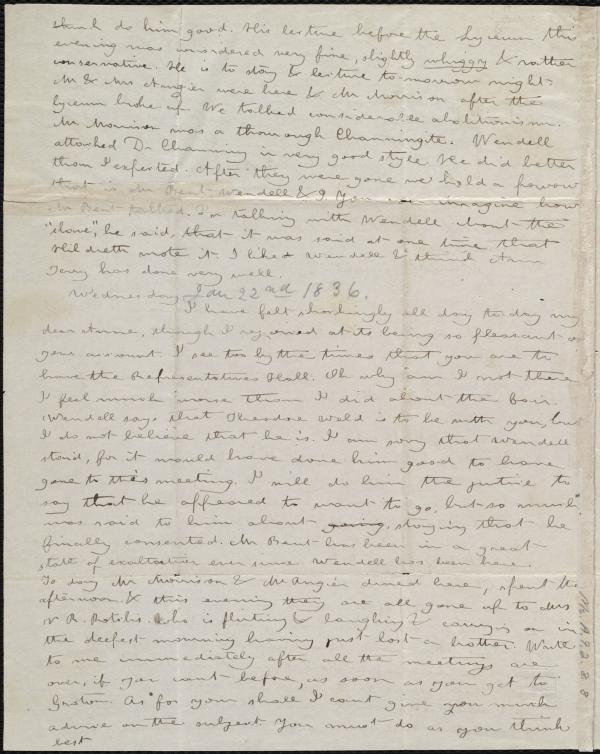 think do him good. His lecture before the Lyceum this
evening was considered very fine, slightly whiggy & rather
conservative. He is to stay & lecture to-morrow night.
Mr & Mrs Angier were here & Mr Morrison after the
lyceum broke up. We talked considerable abolitionism.
Mr Morrison was a thorough Channingite. Wendell
attacked Dr Channing in very good style He did better
than I expected. After they were gone we held a powow
that is Mr Bent Wendell & I. You can imagine how
Mr Bent talked. In talking with Wendell about the
"slave", he said, that it was said at one time that
Hildreth wrote it. I like Wendell & think Ann
Terry has done very well.
Wednesday Jan 22nd 1836.
I have felt shockingly all day to-day my
dear Anne, though I rejoiced at its being so pleasant on
your account. I see too by the times that you are to
have the Representatives Hall. Oh why am I not there
I feel much worse than I did about the fair.
Wendell says that Theodore Weld is to be with you, but
I do not believe that he is. I am sorry that Wendell
staid, for it would have done him good to have
gone to this meeting. I will do him the justice to
say that he appeared to want to go, but so much
was said to him about going, staying that he
finally consented. Mr Bent has been in a great
state of exaltation ever since Wendell has been here.
To day Mr Morrison & Mr Angier dined here, spent the
afternoon & this evening they are all gone up to Mrs
N. R. who is flirting & laughing & carrying on in
the deepest mourning having just lost a brother. Write
to me immediately after all the meetings are
over, if you want before, as soon as you get to
Groton. As for you shall I cant give you much
advice on the subject You must do as you think
best